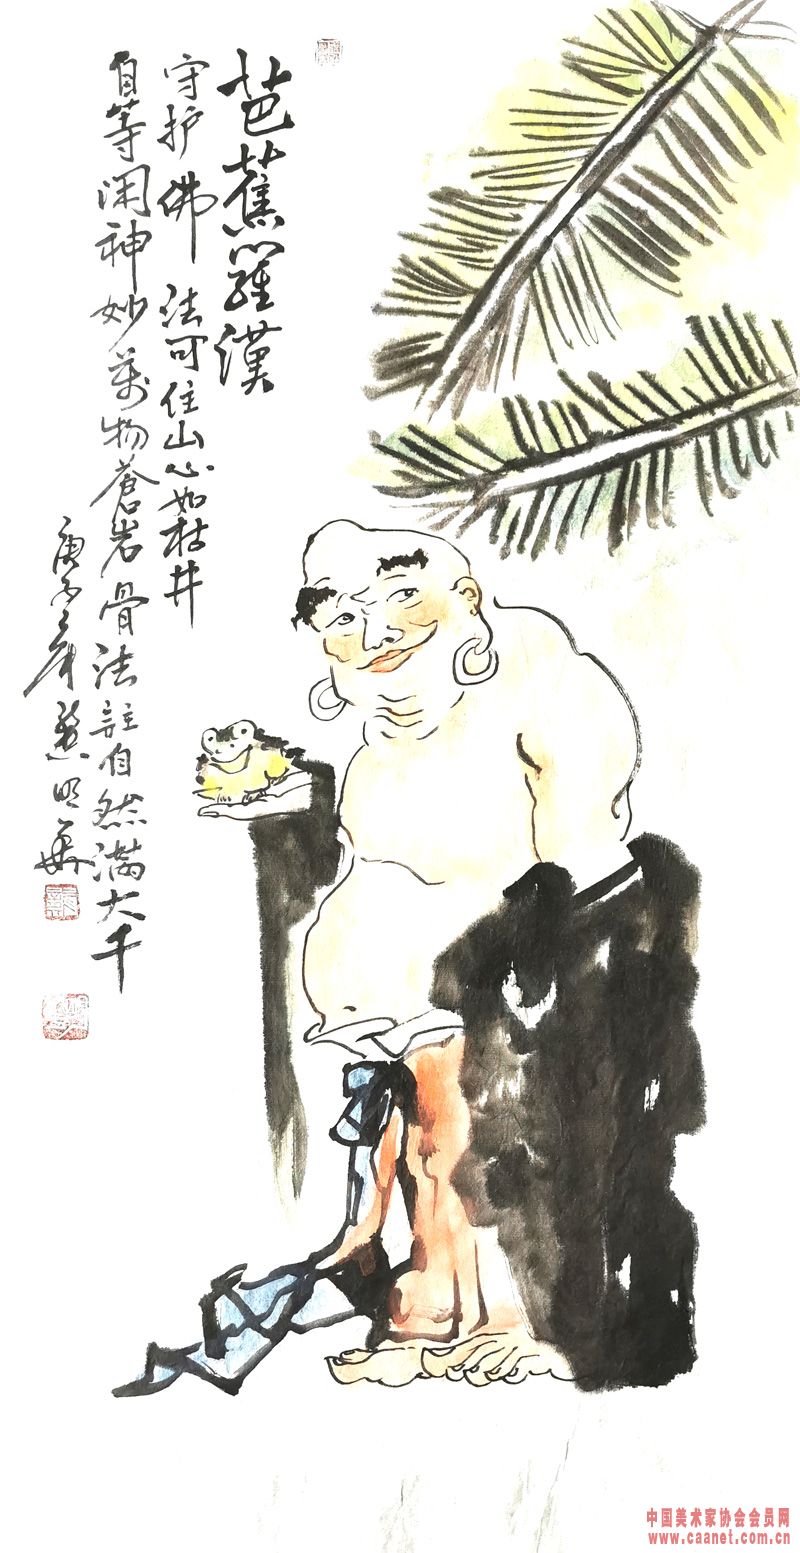 芭蕉羅漢
守护佛法可住山心如枯井
自等闲神妙万物蒼岩骨法註自然满大千
庚子年 明華
中国美术家协会会员网
www.caanet.com.cn